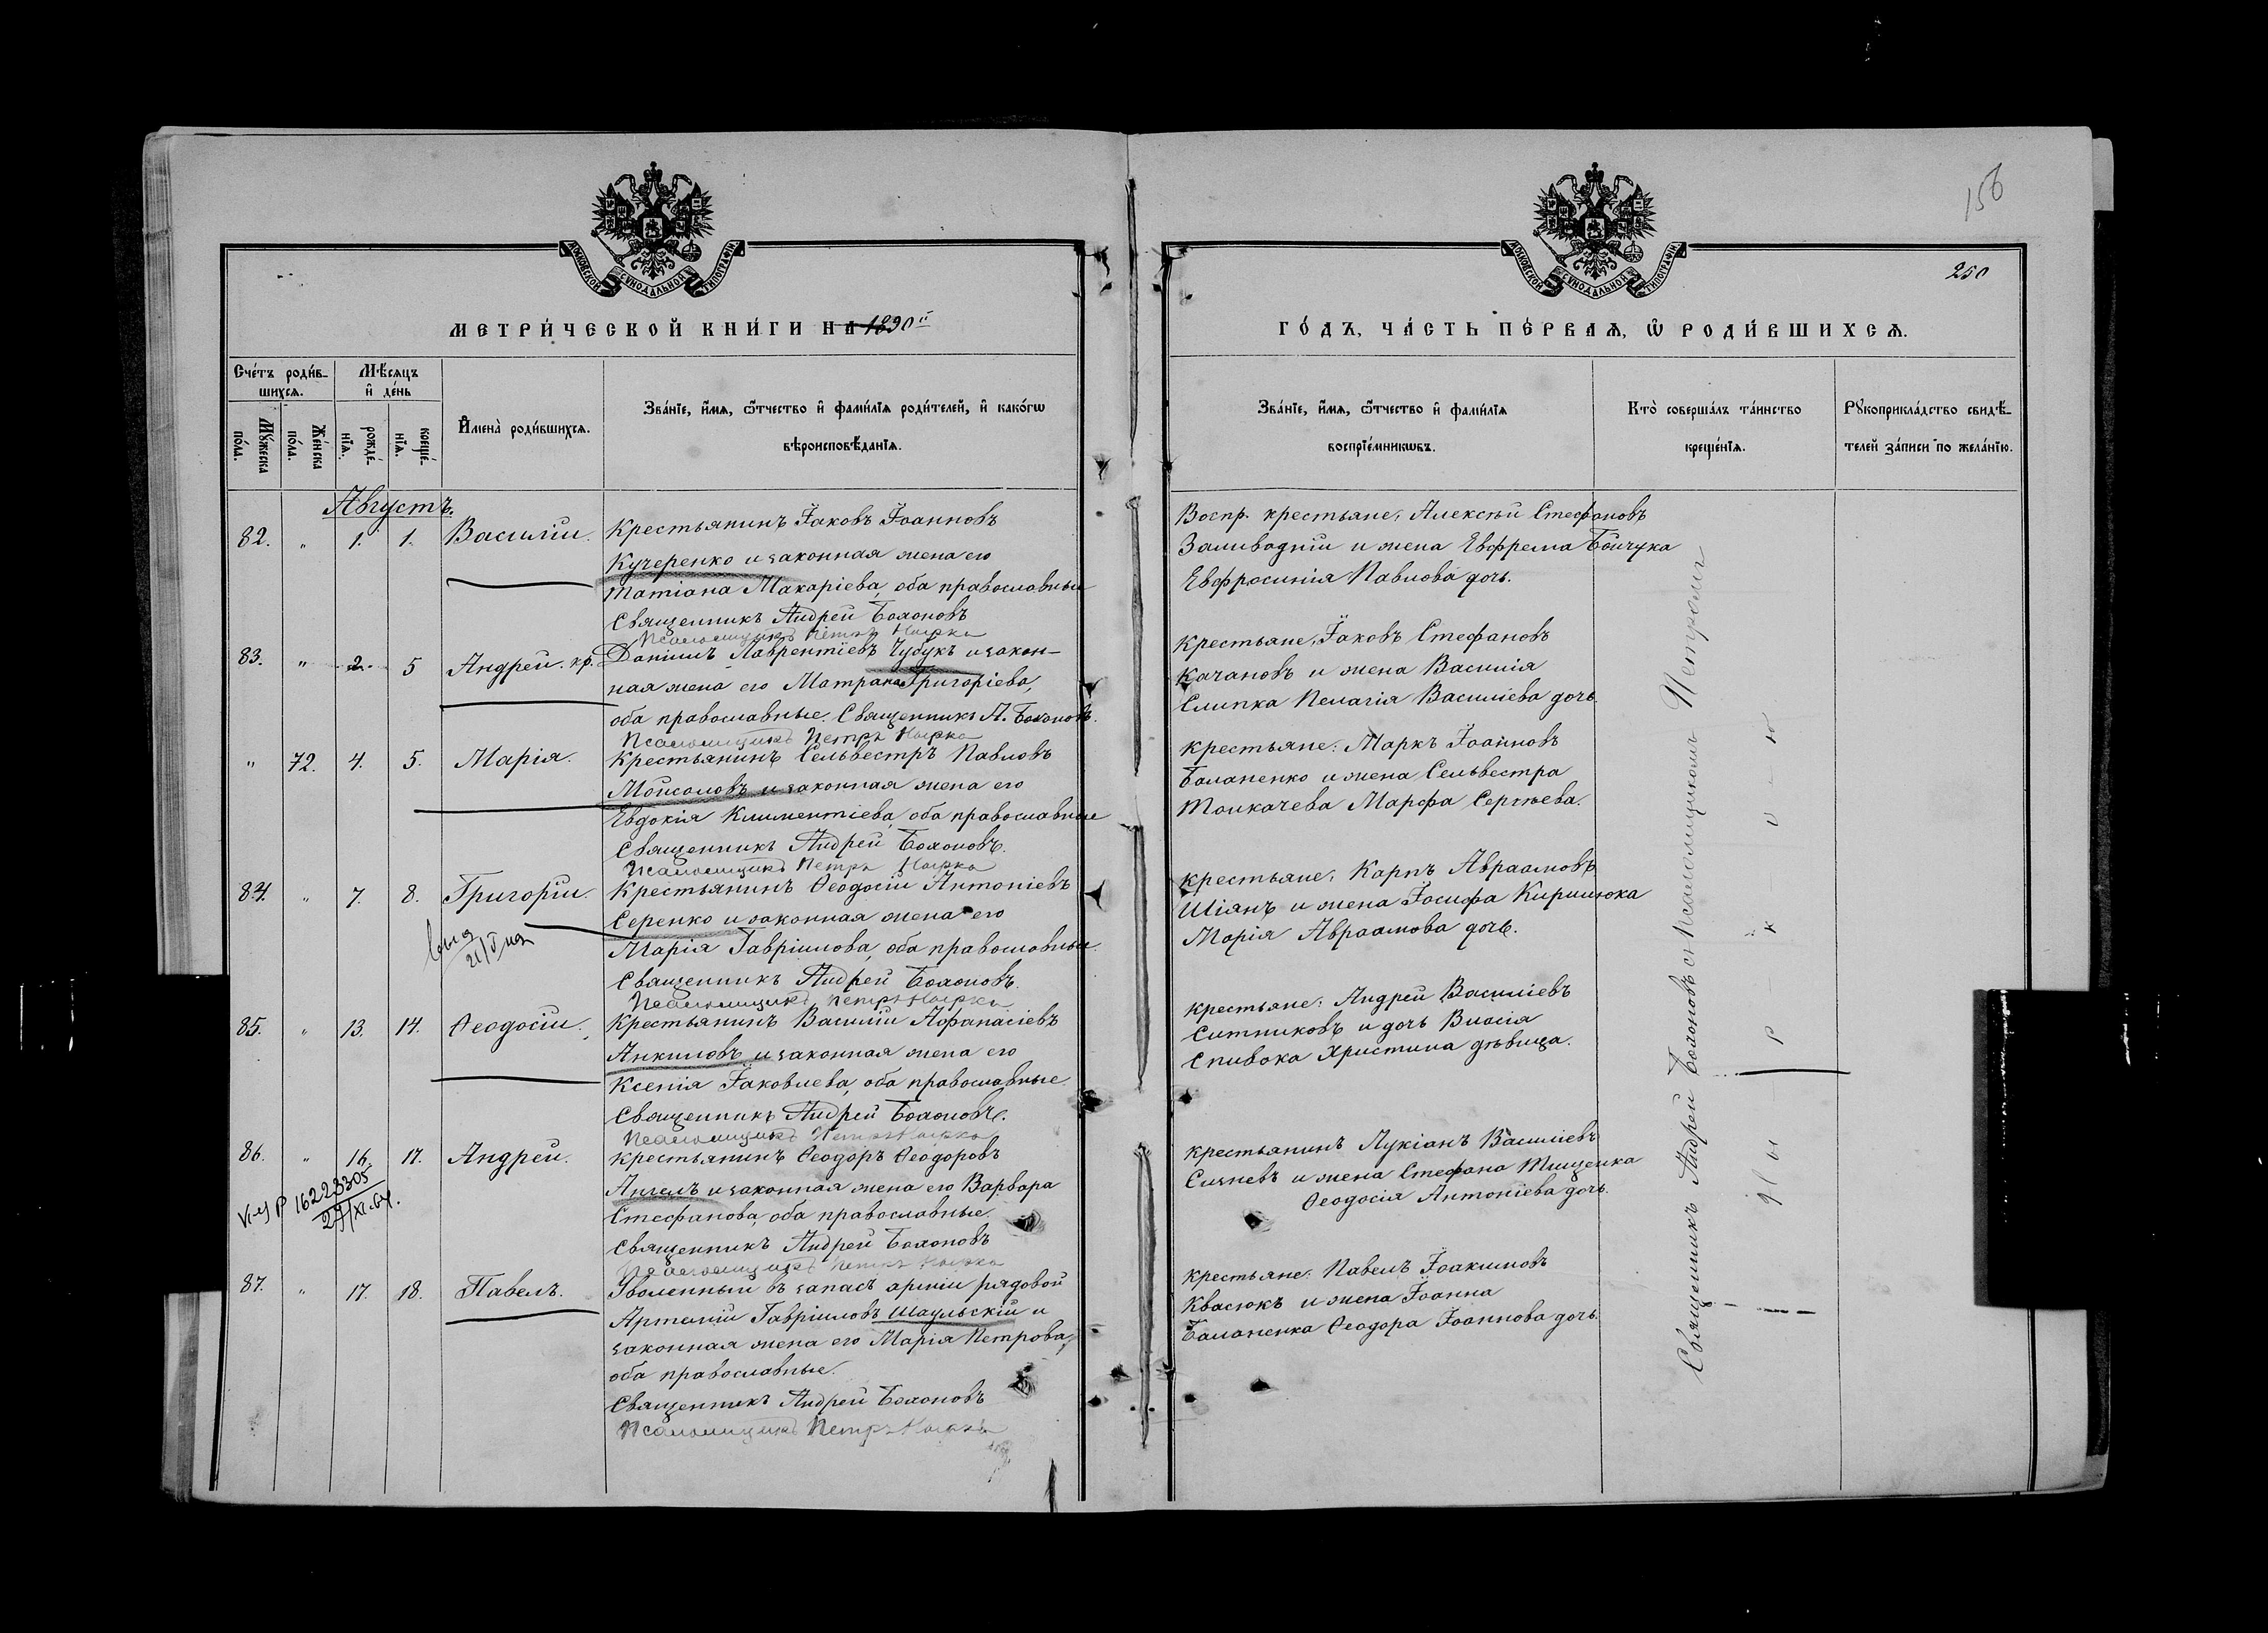 МОСКОВСКОЙ СѴНОДАЛЬНОЙ ТИПОГРАФІИ
МОСКОВСКОЙ СѴНОДАЛЬНОЙ ТИПОГРАФІИ
156
250
МЕТРИ́ЧЕСКОЙ КНИ́ГИ НА 1890й
ГО́ДЪ, ЧА́СТЬ ПЕ́РВАѦ, Ѡ҃ РОДИ́ВШИХСѦ.
Сче́тъ роди́вшихсѧ.
Мѣ́сѧцъ и҆ де́нь
Мꙋ́жеска по́ла.
Же́нска по́ла.
рожде́нїѧ.
креще́нїѧ.
И҆мена̀ роди́вшихсѧ.
Зва́нїе, и҆́мѧ, ѻ҆́тчество и҆ фамѝлїѧ роди́телей, и҆ како́гѡ
вѣроисповѣ́данїѧ.
Зва́нїе, и҆́мѧ, ѻ҆́тчество и҆ фамѝлїѧ
воспрїе́мникѡвъ.
Кто̀ соверша́лъ та́инство
креще́нїѧ.
Рꙋкоприкла́дство свидѣ́-
телей за́писи по жела́нїю.
Августъ.
82. " 1. 1. Василій.
Крестьянинъ Іаковъ Іоанновъ
Кучеренко и законная жена его
Татіана Макаріева, оба православные
Священникъ Андрей Болоновъ
Псаломщикъ Петръ
Воспр. крестьяне, Алексѣй Стефановъ
Заливадній и жена Евфрема Бойчука
Евфросинія Павлова дочь.
83. " 2. 5 Андрей. кр.
Даніилъ Лаврентіевъ Чубукъ и закон-
ная жена его Матрона Григоріева,
оба православные. Священникъ А. Болоновъ.
Псаломщикъ Петръ
Крестьяне, Іаковъ Стефановъ
Качановъ и жена Василія
Слипка Пелагія Василіева дочь.
" 72. 4. 5. Марія.
Крестьянинъ Сельвестръ Павловъ
Мойсаловъ и законная жена его
Евдокія Климентіева, оба православные
Священникъ Андрей Болоновъ.
Псаломщикъ Петръ
Крестьяне: Маркъ Іоанновъ
Баланенко и жена Сельвестра
Толкачева Марфа Сергѣева.
84. " 7. 8. Григорій.
Крестьянинъ Ѳеодосій Антоніевъ
Серенко и законная жена его
Марія Гавріилова, оба православные.
Священникъ Андрей Болоновъ.
Псаломщикъ Петръ
Крестьяне, Карпъ Авраамовъ
Шіянъ и жена Іосифа Кирилюка
Марія Авраамова дочь.
85. " 13. 14. Ѳеодосій.
Крестьянинъ Василій Аѳанасіевъ
Анкиловъ и законная жена его
Ксенія Іаковлева, оба православные.
Священникъ Андрей Болоновъ.
Псаломщикъ Петръ
Крестьяне: Андрей Василіевъ
Ситниковъ и дочь Власія
Спивока Христина дѣвица.
86. " 16. 17. Андрей.
Крестьянинъ Ѳеодоръ Ѳеодоровъ
Ангелъ и законная жена его Варвара
Стефанова, оба православные.
Священникъ Андрей Болоновъ
Псаломщикъ Петръ
Крестьянинъ Лукіанъ Василіевъ
и жена Стефана Тищенка
Ѳеодосія Антоніева дочь.
87. " 17. 18. Павелъ.
Уволенный въ запасъ арміи рядовой
Артемій Гавріиловъ Шаульскій и
законная жена его Марія Петрова,
оба православные.
Священникъ Андрей Болоновъ
Псаломщикъ Петръ
Крестьяне: Павелъ Іоакимовъ
Квасюкъ и жена Іоанна
Баланенка Ѳеодора Іоаннова дочь.
Священникъ Андрей Болоновъ съ псаломщикомъ Петромъ